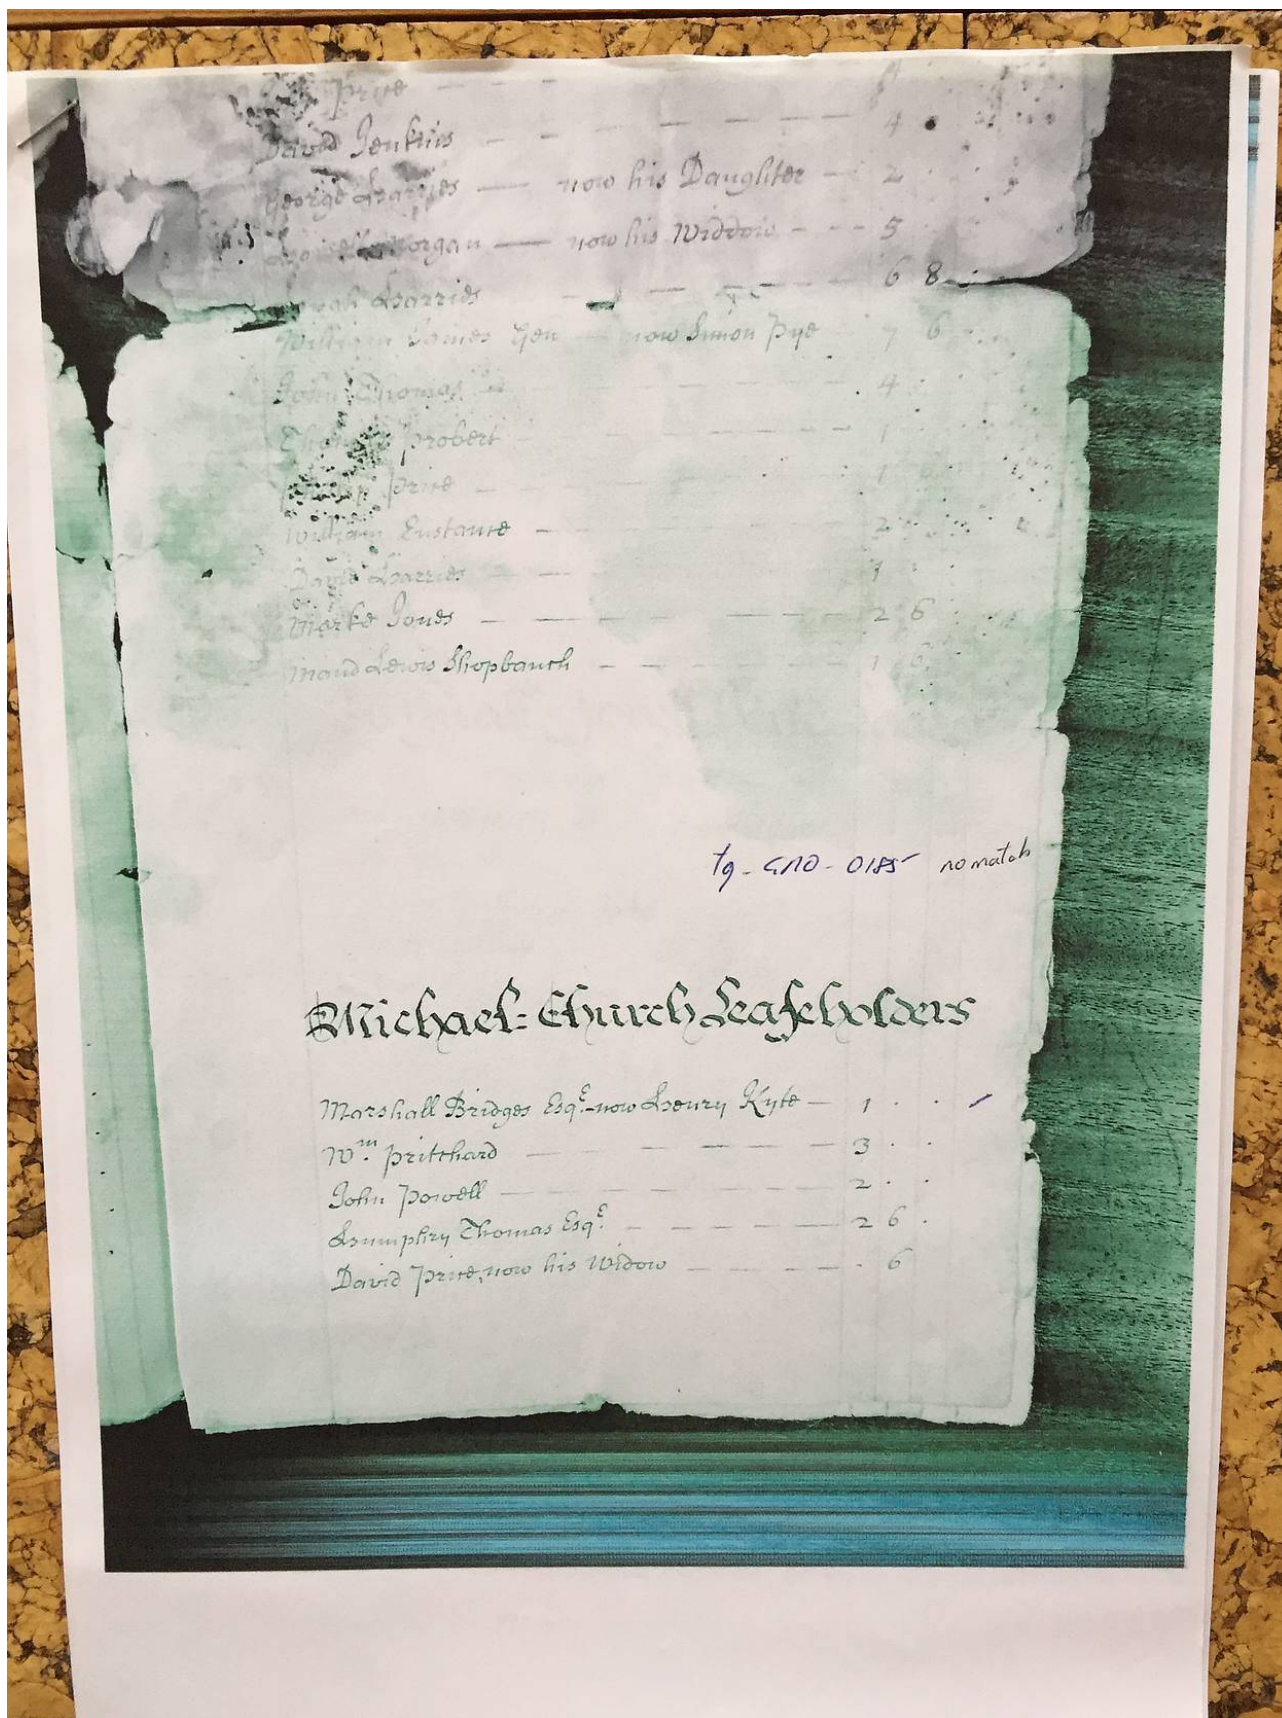 Price — — — 
David Jenkins — — — — 4
George Harries — now his Daughter — 2
Morgan — now his Widdow — 5
Harries — — — 6 8
William James Gen now Simon Pye 7 6
John Thomas — — — 4
Thomas Probert — — — 1
Price — — — 1 6
William Eustance — — — 2
David Harries — — 1
Marke Jones — — — 2 6
Maud Lewis Shopbanch — — — 1 6
no match
Michael=Church Leaseholders
Marshall Bridges Esqr. now Henry Kyte — 1 . .
Wm. Pritchard — — — 3 . .
John Powell — — — 2 . .
Humphry Thomas Esqr. — — — 2 6 .
David Price, now his Widow — — — . 6